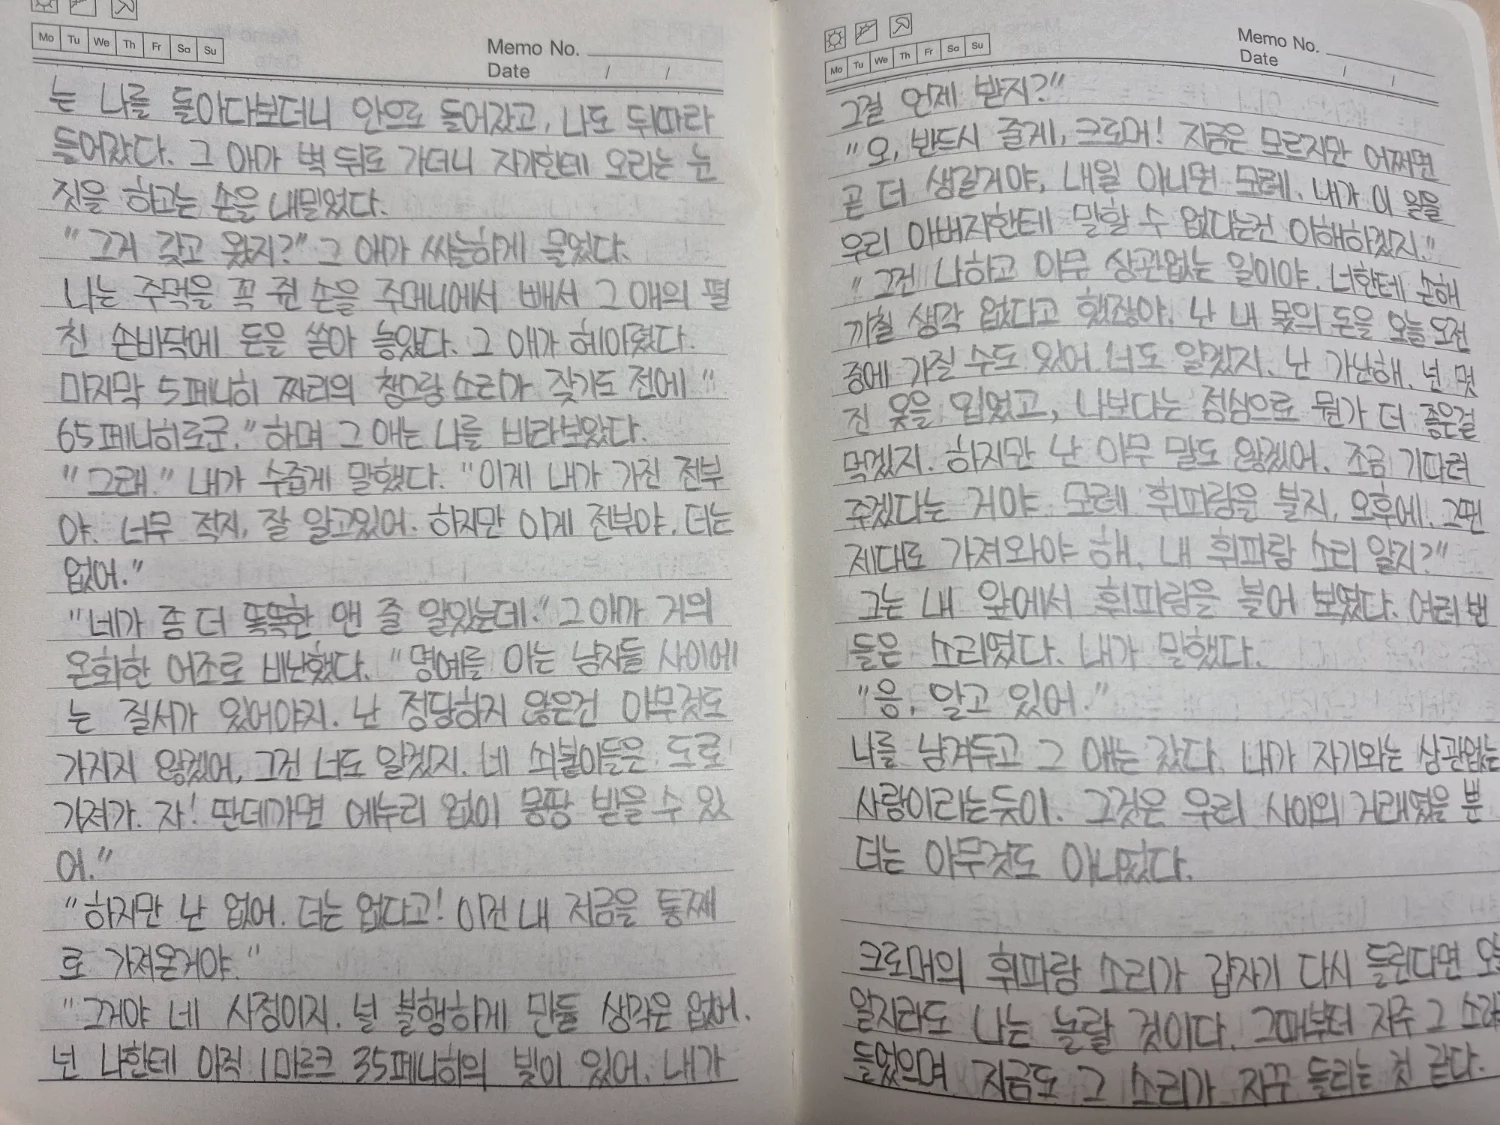 Mo Tu We Th Fr Sa Su
Memo No.
Date / /
는 나를 돌아다보더니 안으로 들어갔고, 나도 뒤따라
들어갔다. 그 애가 벽 뒤로 가더니 자기한테 오라는 눈
짓을 하고는 손을 내밀었다.
"그거 갖고 왔지?" 그 애가 싸늘하게 물었다.
나는 주먹을 꼭 쥔 손을 주머니에서 빼서 그 애의 펼
친 손바닥에 돈을 쏟아 놓았다. 그 애가 헤아렸다.
마지막 5페니히 짜리의 쨍그랑 소리가 잦기도 전에 "
65페니히로군." 하며 그 애는 나를 바라보았다.
"그래." 내가 수줍게 말했다. "이게 내가 가진 전부
야. 너무 적지, 잘 알고있어. 하지만 이게 전부야. 더는
없어."
"네가 좀 더 똑똑한 앤 줄 알았는데." 그 애가 거의
온화한 어조로 비난했다. "명예를 아는 남자들 사이에
는 질서가 있어야지. 난 정당하지 않은건 아무것도
가지지 않겠어, 그건 너도 알겠지. 네 쇠붙이들은 도로
가져가. 자! 딴데가면 에누리 없이 몽땅 받을 수 있
어."
"하지만 난 없어. 더는 없다고! 이건 내 저금을 통째
로 가져온거야."
"그거야 네 사정이지. 널 불행하게 만들 생각은 없어.
넌 나한테 아직 1마르크 35페니히의 빚이 있어. 내가
Mo Tu We Th Fr Sa Su
Memo No.
Date / /
그걸 언제 받지?"
"오, 반드시 줄게, 크로머! 지금은 모르지만 어쩌면
곧 더 생길거야, 내일 아니면 모레. 내가 이 일을
우리 아버지한테 말할 수 없다는건 이해하겠지."
"그건 나하고 아무 상관없는 일이야. 너한테 손해
끼칠 생각 없다고 했잖아. 난 내 몫의 돈을 오늘 오전
중에 가질 수도 있어. 너도 알겠지. 난 가난해. 넌 멋
진 옷을 입었고, 나보다는 점심으로 뭔가 더 좋은걸
먹겠지. 하지만 난 아무 말도 않겠어. 조금 기다려
주겠다는 거야. 모레 휘파람을 불지, 오후에. 그땐
제대로 가져와야 해. 내 휘파람 소리 알지?"
그는 내 앞에서 휘파람을 불어 보였다. 여러 번
들은 소리였다. 내가 말했다.
"응, 알고 있어."
나를 남겨두고 그 애는 갔다. 내가 자기와는 상관없는
사람이라는듯이. 그것은 우리 사이의 거래였을 뿐
더는 아무것도 아니었다.
크로머의 휘파람 소리가 갑자기 다시 들린다면
일지라도 나는 놀랄 것이다. 그때부터 자주 그
들었으며 지금도 그 소리가 자꾸 들리는 것 같다.